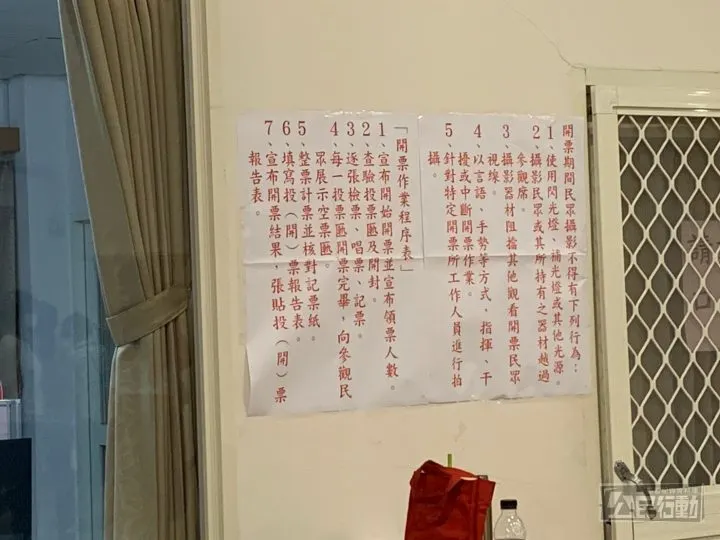 開票期間民眾攝影不得有下列行為：
1、使用閃光燈、補光燈或其他光源。
2、攝影民眾或其所持有之器材越過
參觀席。
3、攝影器材阻擋其他觀看開票民眾
視線。
4、以言語、手勢等方式，指揮、干
擾或中斷開票作業。
5、針對特定開票所工作人員進行拍
攝。
「開票作業程序表」
1、宣布開始開票並宣布領票人數。
2、查驗投票匭及開封。
3、逐張檢票、唱票、記票。
4、每一投票匭開票完畢，向參觀民
眾展示空票匭。
5、整票計票並核對記票紙。
6、填寫投（開）票報告表。
7、宣布開票結果，張貼投（開）票
報告表。
請
公民行動